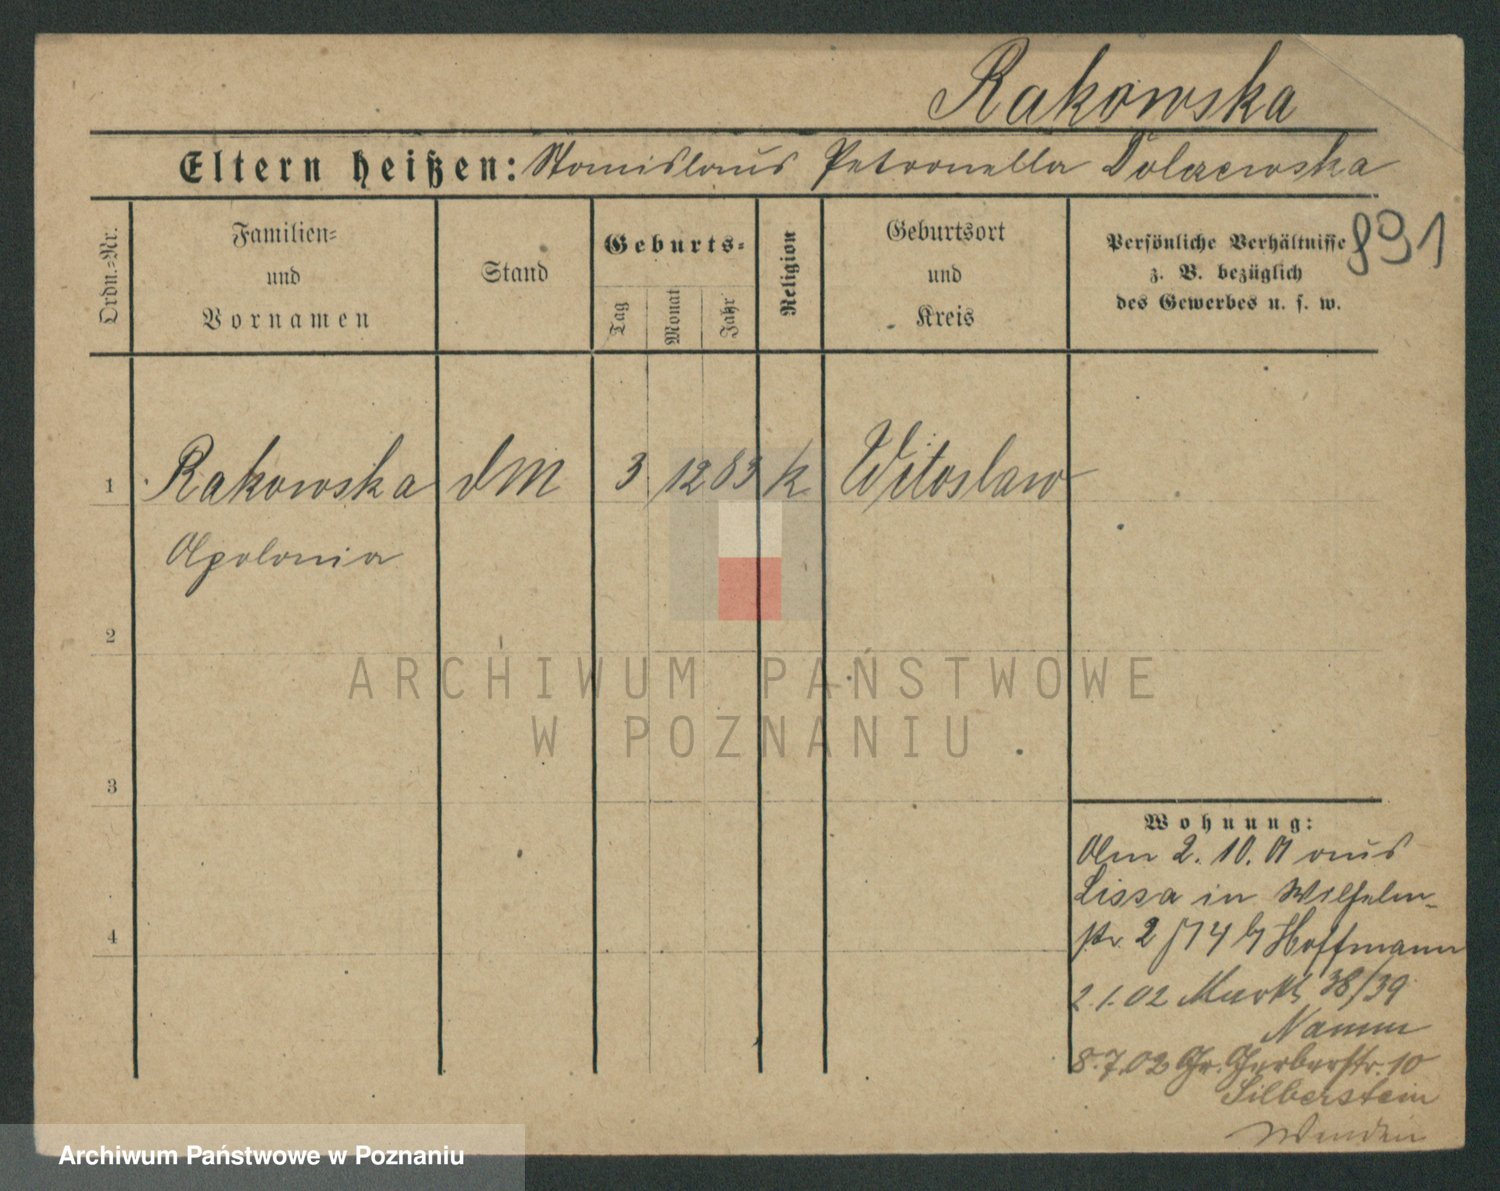 Rakowska
Eltern heißen: Stanislaus Petronella Dolszewska
891
Ordn.-Nr.
Familien-
und
Vornamen
Stand
Geburts-
Tag
Monat
Jahr
Religion
Geburtsort
und
Kreis
Persönliche Verhältnisse
z. B. bezüglich
des Gewerbes u. s. w.
1
Rakowska dM 3 12 83 k Witoslaw
Apolonia
2
ARCHIWUM PAŃSTWOWE
W POZNANIU
3
Wohnung:
Am 2. 10. 01 aus
Lissa in Wilhelm-
str. 2 14 b Hoffmann
2.1.02 Markt 38/39
Namm
4
8.7.02 Gr. Gerberstr. 10
Silberstein
Archiwum Państwowe w Poznaniu